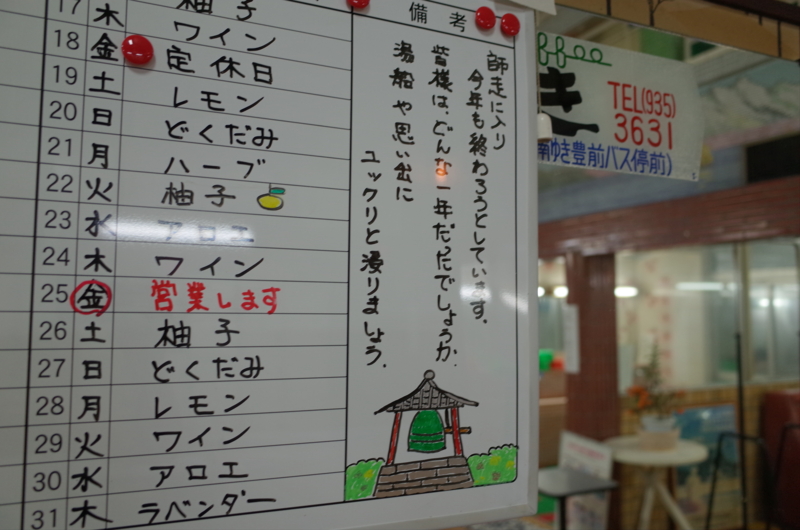 17 木 柚子
備考
ワイン
18 金 定休日
19 土 レモン
20 日 どくだみ
21 月 ハーブ
22 火 柚子
23 水 アロエ
24 木 ワイン
25 金 営業します
26 土 柚子
27 日 どくだみ
28 月 レモン
29 火 ワイン
30 水 アロエ
31 木 ラベンダー
師走に入り
今年も終わろうとしています。
皆様は、どんな一年だったでしょうか。
湯船や思い出に
ユックリと浸りましょう。
き
TEL(935)
3631
ゆき豊前バス停前)